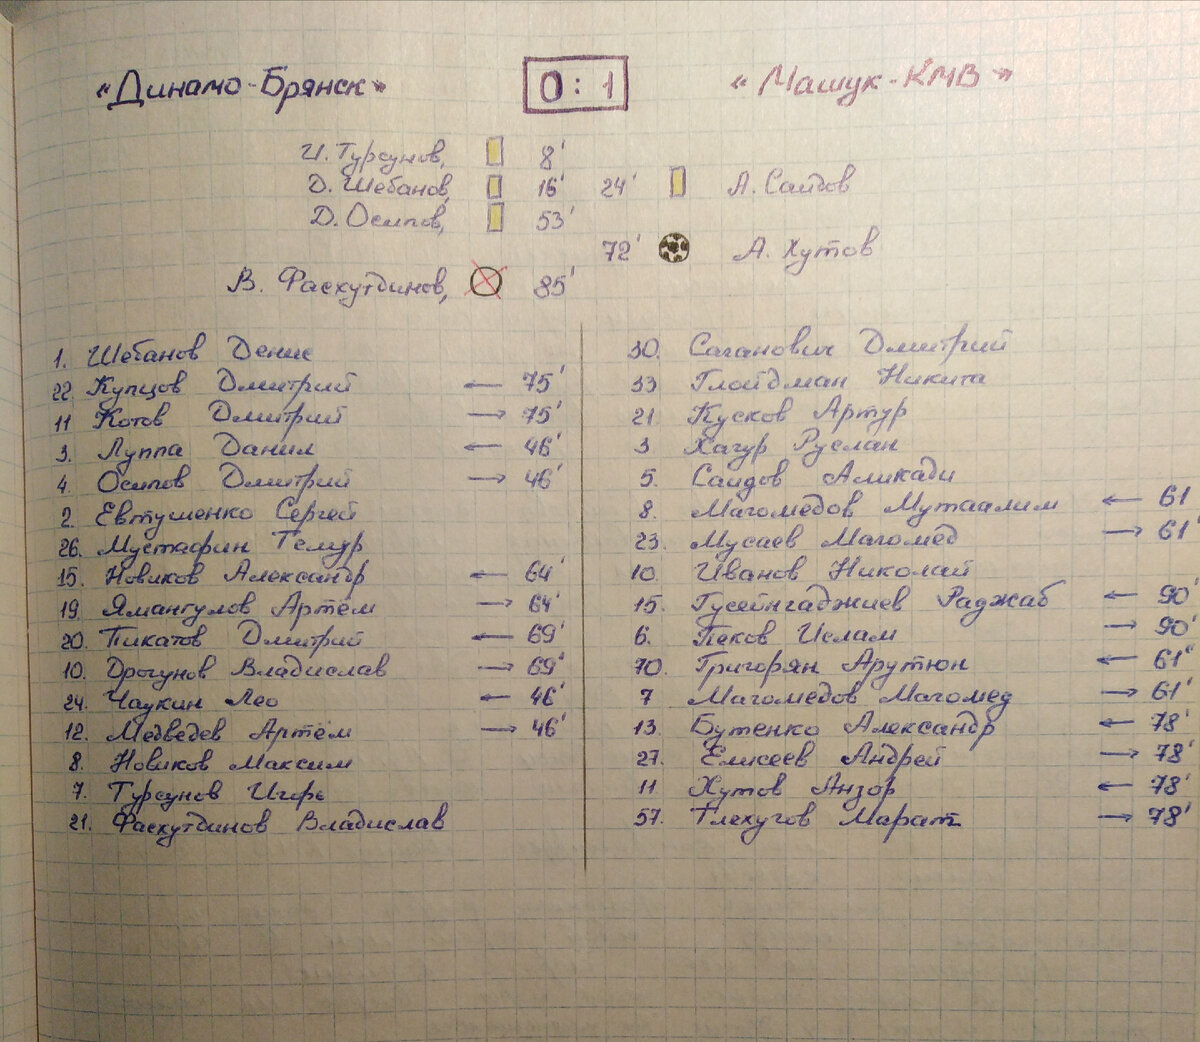 «Динамо-Брянск» 0:1 «Машук-КМВ»
И. Турсунов, 8'
Д. Шебанов, 16' 24' А. Саидов
Д. Осипов, 53'
72' А. Хутов
В. Фасхутдинов, 85'
1. Шебанов Денис
22 Купцов Дмитрий ← 75'
11 Котов Дмитрий → 75'
3. Луппа Данил ← 46'
4. Осипов Дмитрий → 46'
2. Евтушенко Сергей
26. Мустафин Темур
15. Новиков Александр ← 64'
19 Ямангулов Артём → 64'
20. Пикатов Дмитрий ← 69'
10. Дрогунов Владислав → 69'
24. Чаукин Лео ← 46'
12. Медведев Артём → 46'
8. Новиков Максим
7. Турсунов Игорь
21. Фасхутдинов Владислав
30. Саганович Дмитрий
33 Глойдман Никита
21 Кусков Артур
3 Хагур Руслан
5. Саидов Аликади
8. Магомедов Мутаалим ← 61
23. Мусаев Магомед → 61
10 Иванов Николай
15. Гусейнгаджиев Раджаб ← 90'
6. Пеков Ислам → 90'
70. Григорян Арутюн ← 61'
7 Магомедов Магомед → 61'
13. Бутенко Александр ← 78'
27. Елисеев Андрей → 78'
11 Хутов Анзор ← 78'
57. Тлехугов Марат → 78'